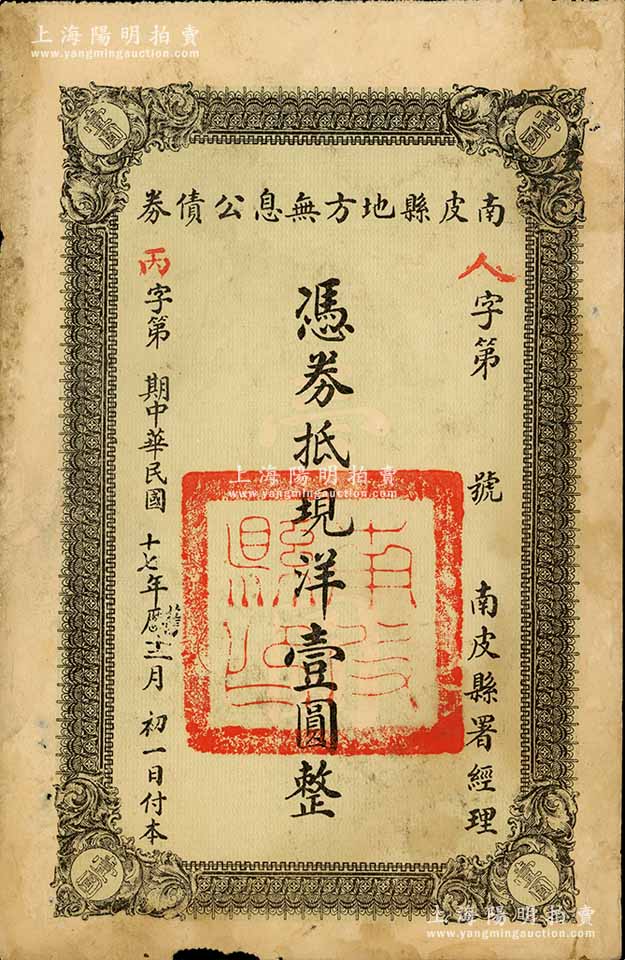 上海陽明拍賣
www.yangmingauction.com
南皮縣地方無息公債劵
人字第 號 南皮縣署經理
憑劵抵現洋壹圓整
丙字第 期中華民國十七年舊曆十二月初一日付本
南皮縣印
上海陽明拍賣
www.yangmingauction.com
壹圓
壹圓
壹圓
壹圓
上海陽明拍賣
www.yangmingauction.com